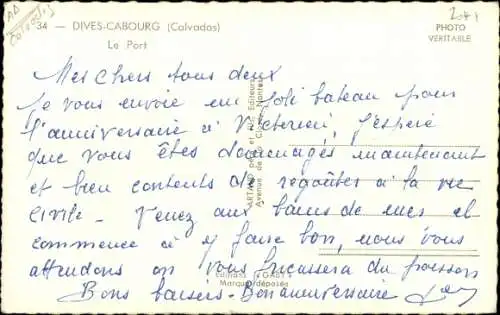 34 — DIVES-CABOURG (Calvados)
Le Port
PHOTO
VERITABLE
Mes chers tous deux
Je vous envoie un joli bateau pour
l'anniversaire à Victorien, j'espère
que vous êtes démenagés maintenant
et bien contents de regoûter à la vie
civile - Venez aux bains de mer
commence à y faire bon, nous vous
attendons on vous fricassera du poisson
Bons baisers - Bon anniversaire
Editions "GABY"
Marque déposée